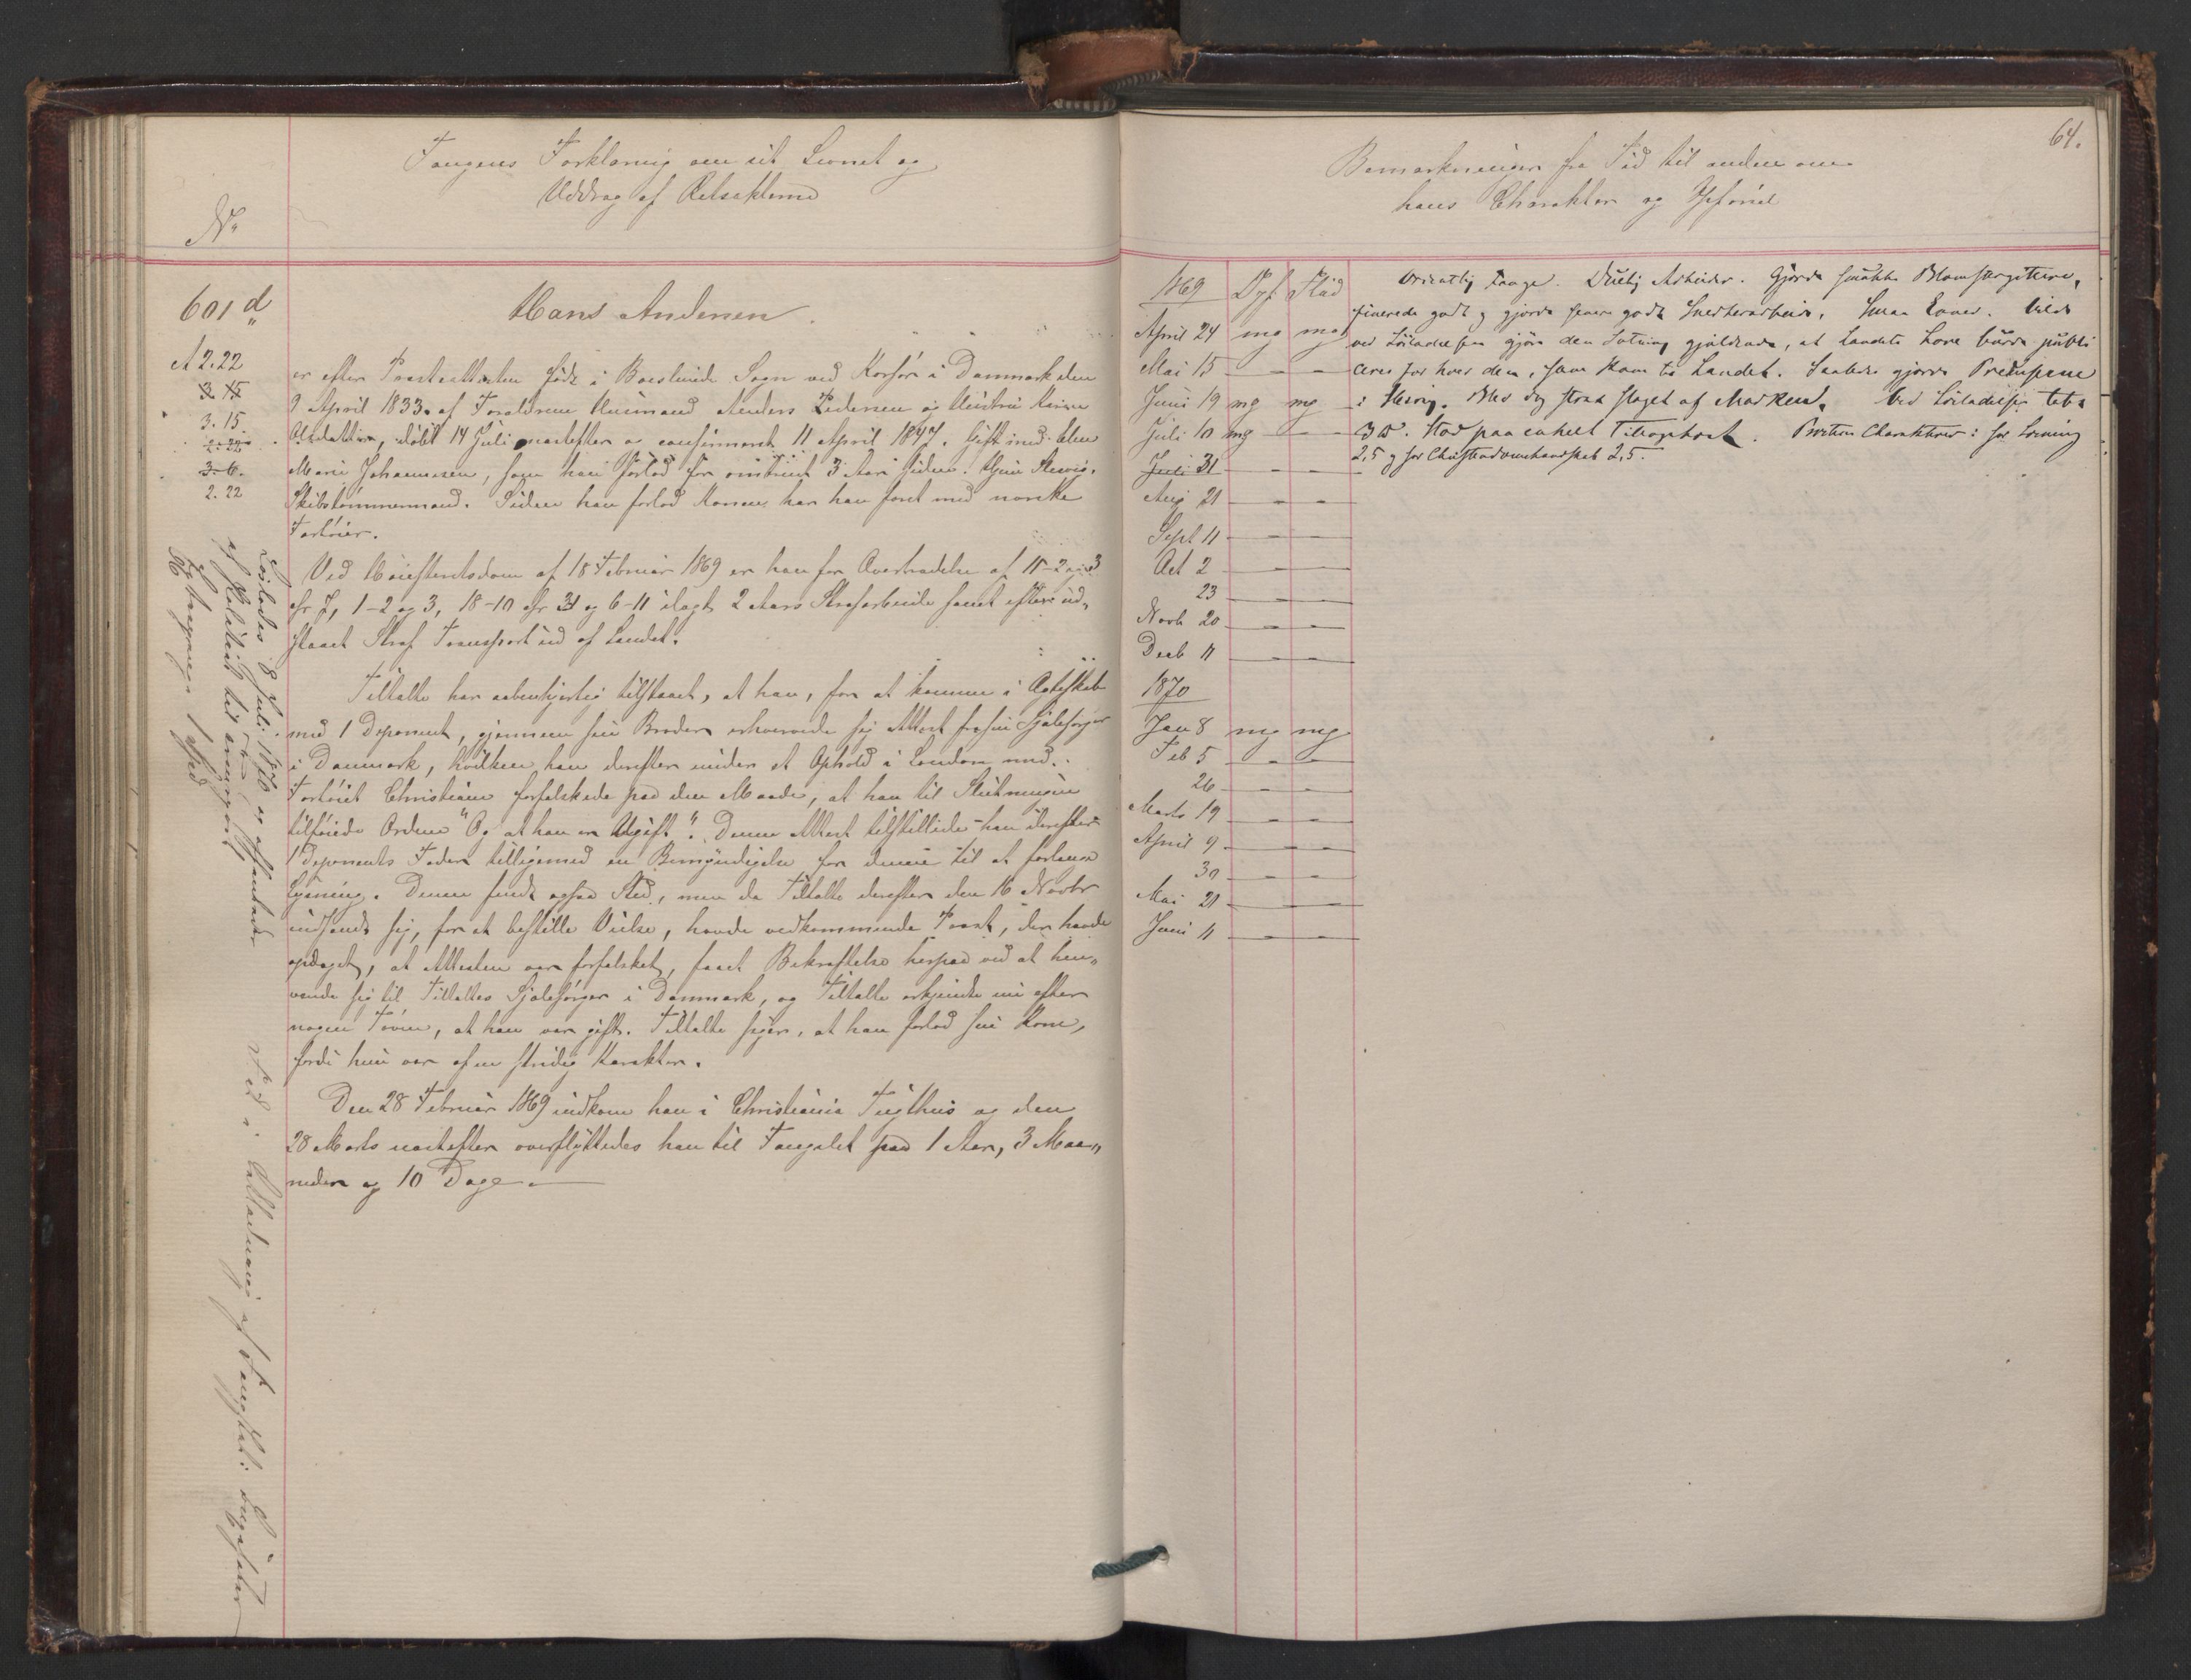 Fangens Forklaring om sit Levnet og
Uddrag af Retsakterne
No
601 d
A 2.22
3.15
3.15.
2.22
3.6.
2.22
Hans Andersen.
er efter Præsteattesten født i Boeslunde Sogn ved Korsør i Danmark den
9 April 1833 af Forældrene Huusmand Anders Pedersen og Hustru Karen
Olsdatter, døbt 14 Juli næstefter og confirmeret 11 April 1847. Gift med Elen
Marie Johannesen, som han forlod for omtrent 3 Aar siden.
Skibstømmermand. Siden han forlod Konen, har han faret med norske
Fartøier.
Ved Høiesteretsdom af 18 Februar 1869 er han for Overtrædelse af 11-2 og 3
cfr 7, 1-2 og 3, 18-10 cfr 31 og 6-11 ilagt 2 Aars Strafarbeide samt efter ud-
staaet Straf Transport ud af Landet.
Tiltalte har aabenhjertig tilstaaet, at han, for at komme i Ægteskab
med 1 Deponent, gjennem sin Broder erhvervede sig Attest fra sin Sjælesørger
i Danmark, hvilken han derefter under et Ophold i London med
Fartøiet Christiane forfalskede paa den Maade, at han til Slutningen
tilføiede Ordene "Og at han er Ugift". Denne Attest tilstillede han derefter
1 Deponents Fader tilligemed en Bemyndigelse for denne til at forlange
Lysning. Denne fandt ogsaa Sted, men da Tiltalte derefter den 16 Novbr
indfandt sig, for at bestille Vielse, havde vedkommende Præst, der havde
opdaget, at Attesten var forfalsket, faaet Bekræftelse herpaa ved at hen-
vende sig til Tiltaltes Sjælesørger i Danmark, og Tiltalte erkjendte nu efter
nogen Tøven, at han var gift. Tiltalte siger, at han forlod sin Kone,
fordi hun var af en stridig Karakter.
Den 28 Februar 1869 indkom han i Christiania Tugthus og den
28 Marts næstefter overflyttedes han til Fængslet paa 1 Aar, 3 Maa-
neder og 10 Dage.
Løslades 8 Juli 1870 og afhentedes
af Politiet
64.
Bemærkninger fra Tid til anden om
hans Charakter og Opførsel
1869 Opf Flid
April 24 mg mg
Mai 15 - -
Juni 19 mg mg
Juli 10 mg -
Juli 31 - -
Aug 21 - -
Sept 11 - -
Oct 2 - -
23 - -
Novb 20 - -
Decb 11 - -
1870
Jan 8 mg mg
Feb 5 - -
26 - -
Marts 19 - -
April 9 - -
30 - -
Mai 21 - -
Juni 11 - -
Ordentlig Fange. Duelig Arbeider. Gjorde smukke Blomstergittere,
finerede godt og gjorde senere godt Snedkerarbeide. Smaa Evner. Vilde
ved Løsladelsen gjøre den Sætning gjældende, at Landets Love burde publi
ceres for hver den, som kom til Landet. Saaledes gjorde Preusserne
i Slesvig. Blev dog strax slaget af Marken. Ved Løsladelsen
3 W. Stod paa enkelt . Charakterer: for Læsning
2,5 og for Christendomskundskab 2,5.